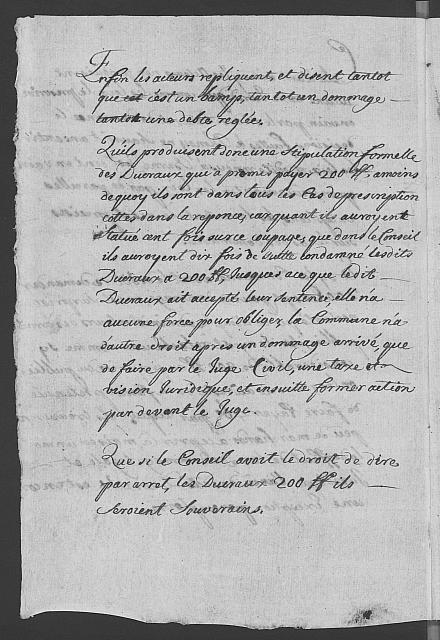 Enfin les acteurs repliquent, et disent tantot
que cet c'est un bamp, tantot un dommage
tantot une debte reglée.
Quils produisent donc une stipulation formelle
des Ducraux qui a promis payer 200 ff, amoins
dequoy ils sont dans tous les cas de prescription
cottés dans la reponce, car quant ils auroyent
statué cent fois sur ce coupage, que dans le Conseil
ils auroyent dix fois de suitte condamné lesdits
Ducraux a 200 ff, Jusques a ce que ledit
Ducraux ait accepté leur sentence, elle n'a
aucune force pour obliger la Commune n'a
dautre droit apres un dommage arrivé, que
de faire par le Juge Civil, une taxe et
vision Juridique, et ensuitte former action
par devant le Juge.
Que si le Conseil avoit le droit de dire
par arret, les Ducraux 200 ff ils
seroient Souverains.